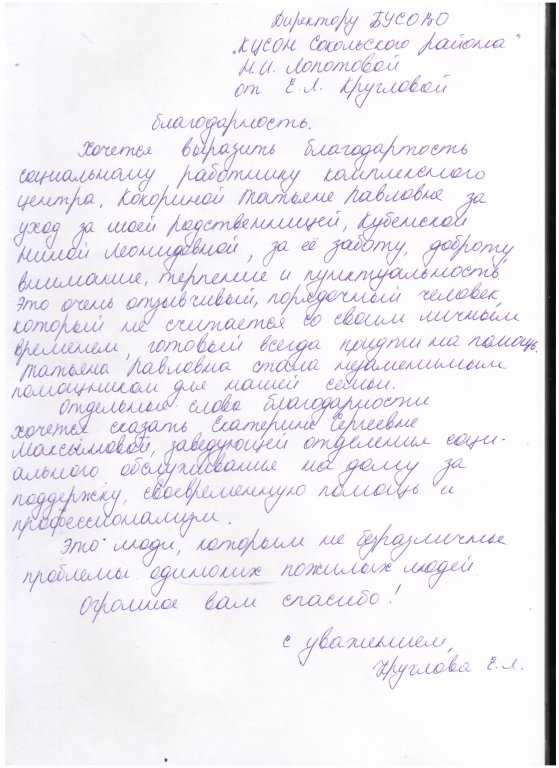 Директору БУСОВО
"КЦСОН Сокольского района"
Н.И. Лопотовой
от Е.Л. Кругловой
благодарность.
Хочется выразить благодарность
социальному работнику комплексного
центра, Кокориной Татьяне Павловне за
уход за моей родственницей, Кубенской
Ниной Леонидовной, за её заботу, доброту,
внимание, терпение и пунктуальность.
Это очень отзывчивый, порядочный человек,
который не считается со своим личным
временем, готовый всегда придти на помощь.
Татьяна Павловна стала незаменимым
помощником для нашей семьи.
Отдельные слова благодарности
хочется сказать Екатерине Сергеевне
Максимовой, заведующей отделения соци-
ального обслуживания на дому за
поддержку, своевременную помощь и
профессионализм.
Это люди, которым не безразличны
проблемы одиноких пожилых людей.
Огромное вам спасибо!
с уважением,
Круглова Е.Л.